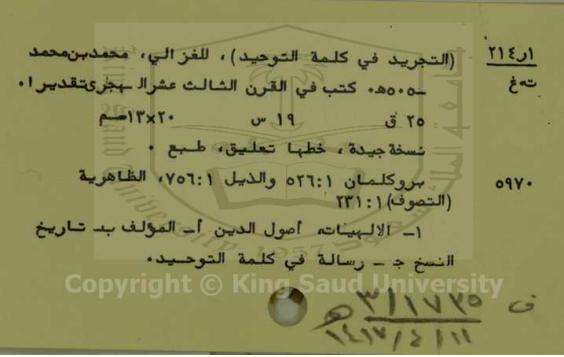 ٢١٤ر١ (التجريد في كلمة التوحيد)، للغزالي، محمدبن محمد
ت٠غ ـ٥٠٥ه٠ كتب في القرن الثالث عشر الهجري تقديرا٠
٢٥ ق ١٩ س ٢٠×١٣سم
نسخة جيدة، خطها تعليق، طبع ٠
٥٩٧٠ بروكلمان ١:٥٢٦ والذيل ١:٧٥٦، الظاهرية
(التصوف)١:٢٣١
١ـ الالهيات، أصول الدين أـ المؤلف بـ تاريخ
النسخ جـ ـ رسالة في كلمة التوحيد٠
Copyright © King Saud University
ف ٣/١٧٣٥
١٤١٧/٤/١١ ه